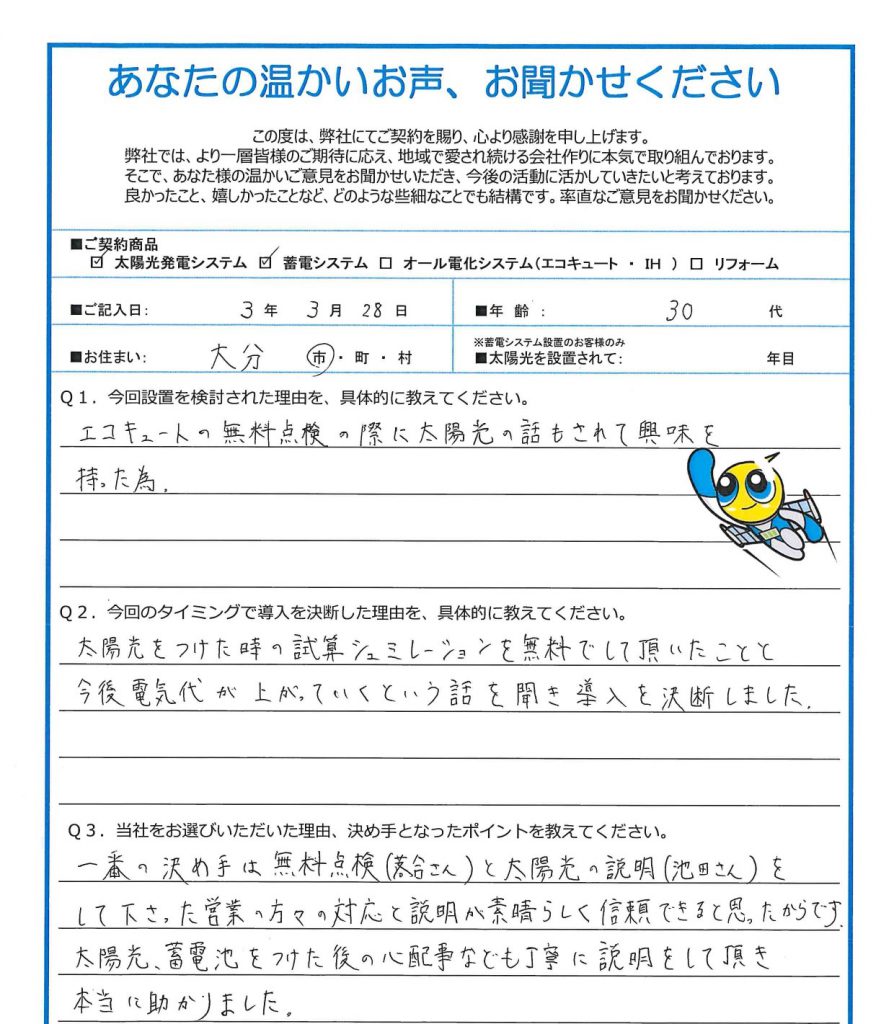 あなたの温かいお声、お聞かせください
この度は、弊社にてご契約を賜り、心より感謝を申し上げます。
弊社では、より一層皆様のご期待に応え、地域で愛され続ける会社作りに本気で取り組んでおります。
そこで、あなた様の温かいご意見をお聞かせいただき、今後の活動に活かしていきたいと考えております。
良かったこと、嬉しかったことなど、どのような些細なことでも結構です。率直なご意見をお聞かせください。
■ご契約商品
☑ 太陽光発電システム ☑ 蓄電システム □ オール電化システム(エコキュート ・ IH ) □ リフォーム
■ご記入日: 3 年 3 月 28 日 ■年 齢 : 30 代
※蓄電システム設置のお客様のみ
■お住まい: 大分 市・町・村 ■太陽光を設置されて: 年目
Q1.今回設置を検討された理由を、具体的に教えてください。
エコキュートの無料点検の際に太陽光の話もされて興味を
持った為.
Q2.今回のタイミングで導入を決断した理由を、具体的に教えてください。
太陽光をつけた時の試算シュミレーションを無料でして頂いたことと
今後電気代が上がっていくという話を聞き導入を決断しました.
Q3.当社をお選びいただいた理由、決め手となったポイントを教えてください。
一番の決め手は無料点検(落合さん)と太陽光の説明(池田さん)を
して下さった営業の方々の対応と説明が素晴らしく信頼できると思ったからです.
太陽光、蓄電池をつけた後の心配事なども丁寧に説明をして頂き
本当に助かりました.